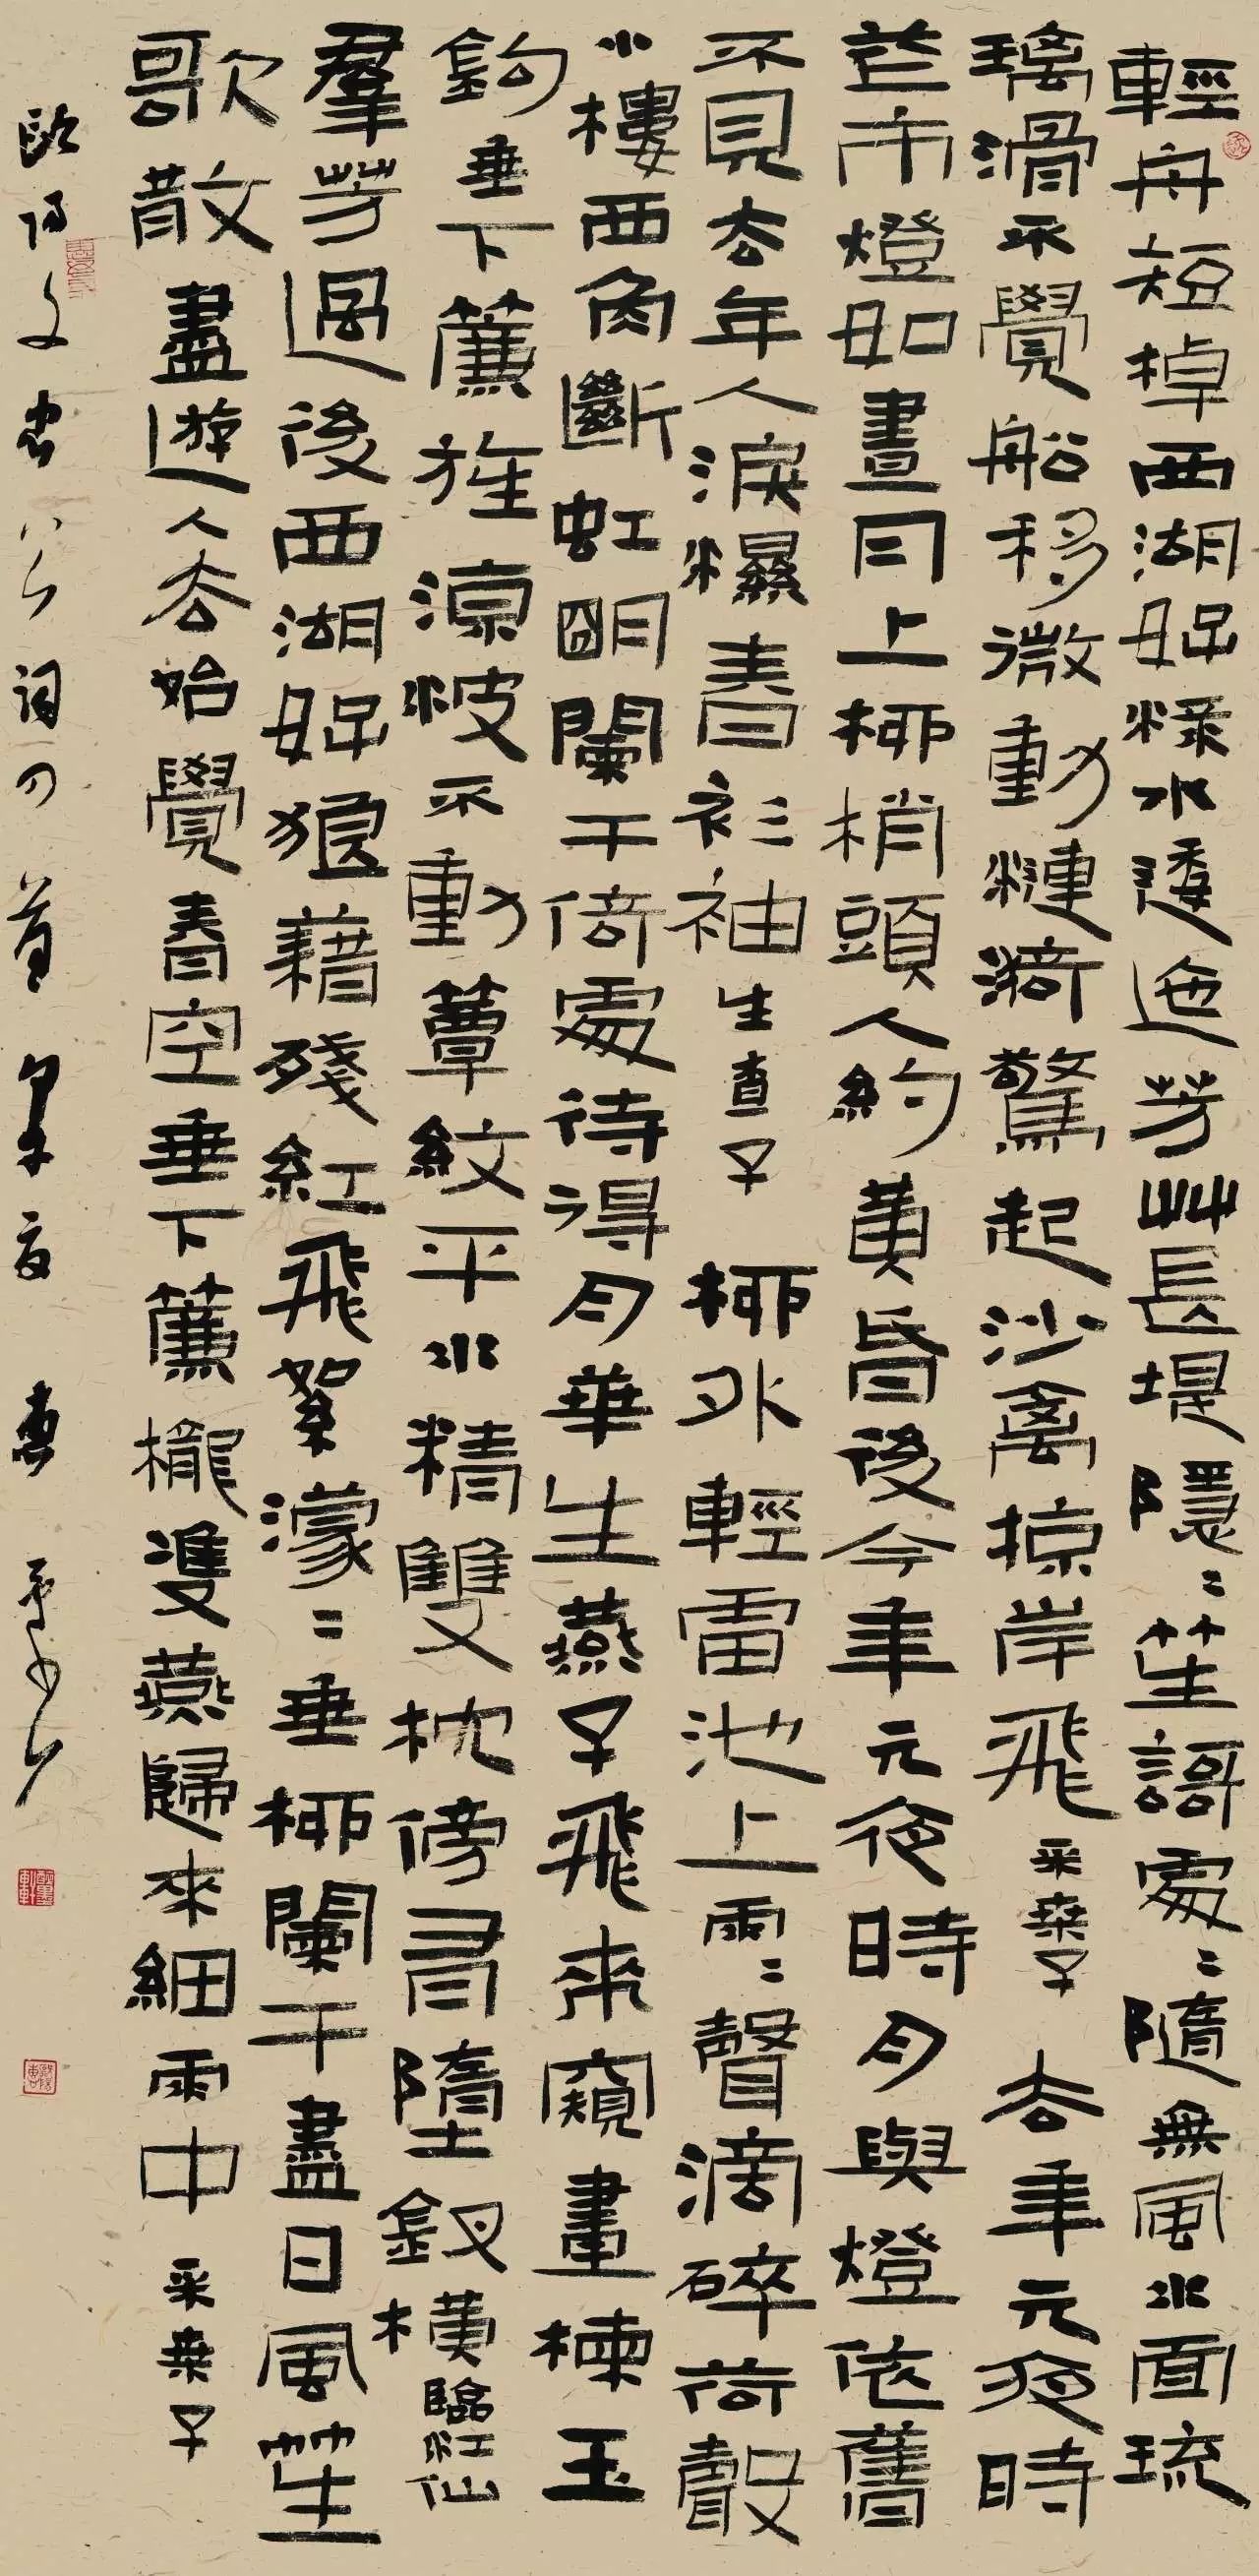 輕舟短棹西湖好綠水逶迤芳艸長堤隱〻笙謌處〻隨無風水面琉
璃滑不覺船移微動漣漪驚起沙禽掠岸飛采桑子去年元夜時
花市燈如晝月上柳梢頭人約黃昏後今年元夜時月與燈依舊
不見去年人淚濕春衫袖生查子柳外輕雷池上雨〻聲滴碎荷聲
小樓西角斷虹明闌干倚處待得月華生燕子飛來窺畫棟玉
鉤垂下簾旌涼波不動簟紋平水精雙枕傍有墮釵橫臨江仙
羣芳過後西湖好狼藉殘紅飛絮濛〻垂柳闌干盡日風笙
歌散盡遊人去始覺春空垂下簾櫳雙燕歸來細雨中采桑子
歐陽文忠公詞四首